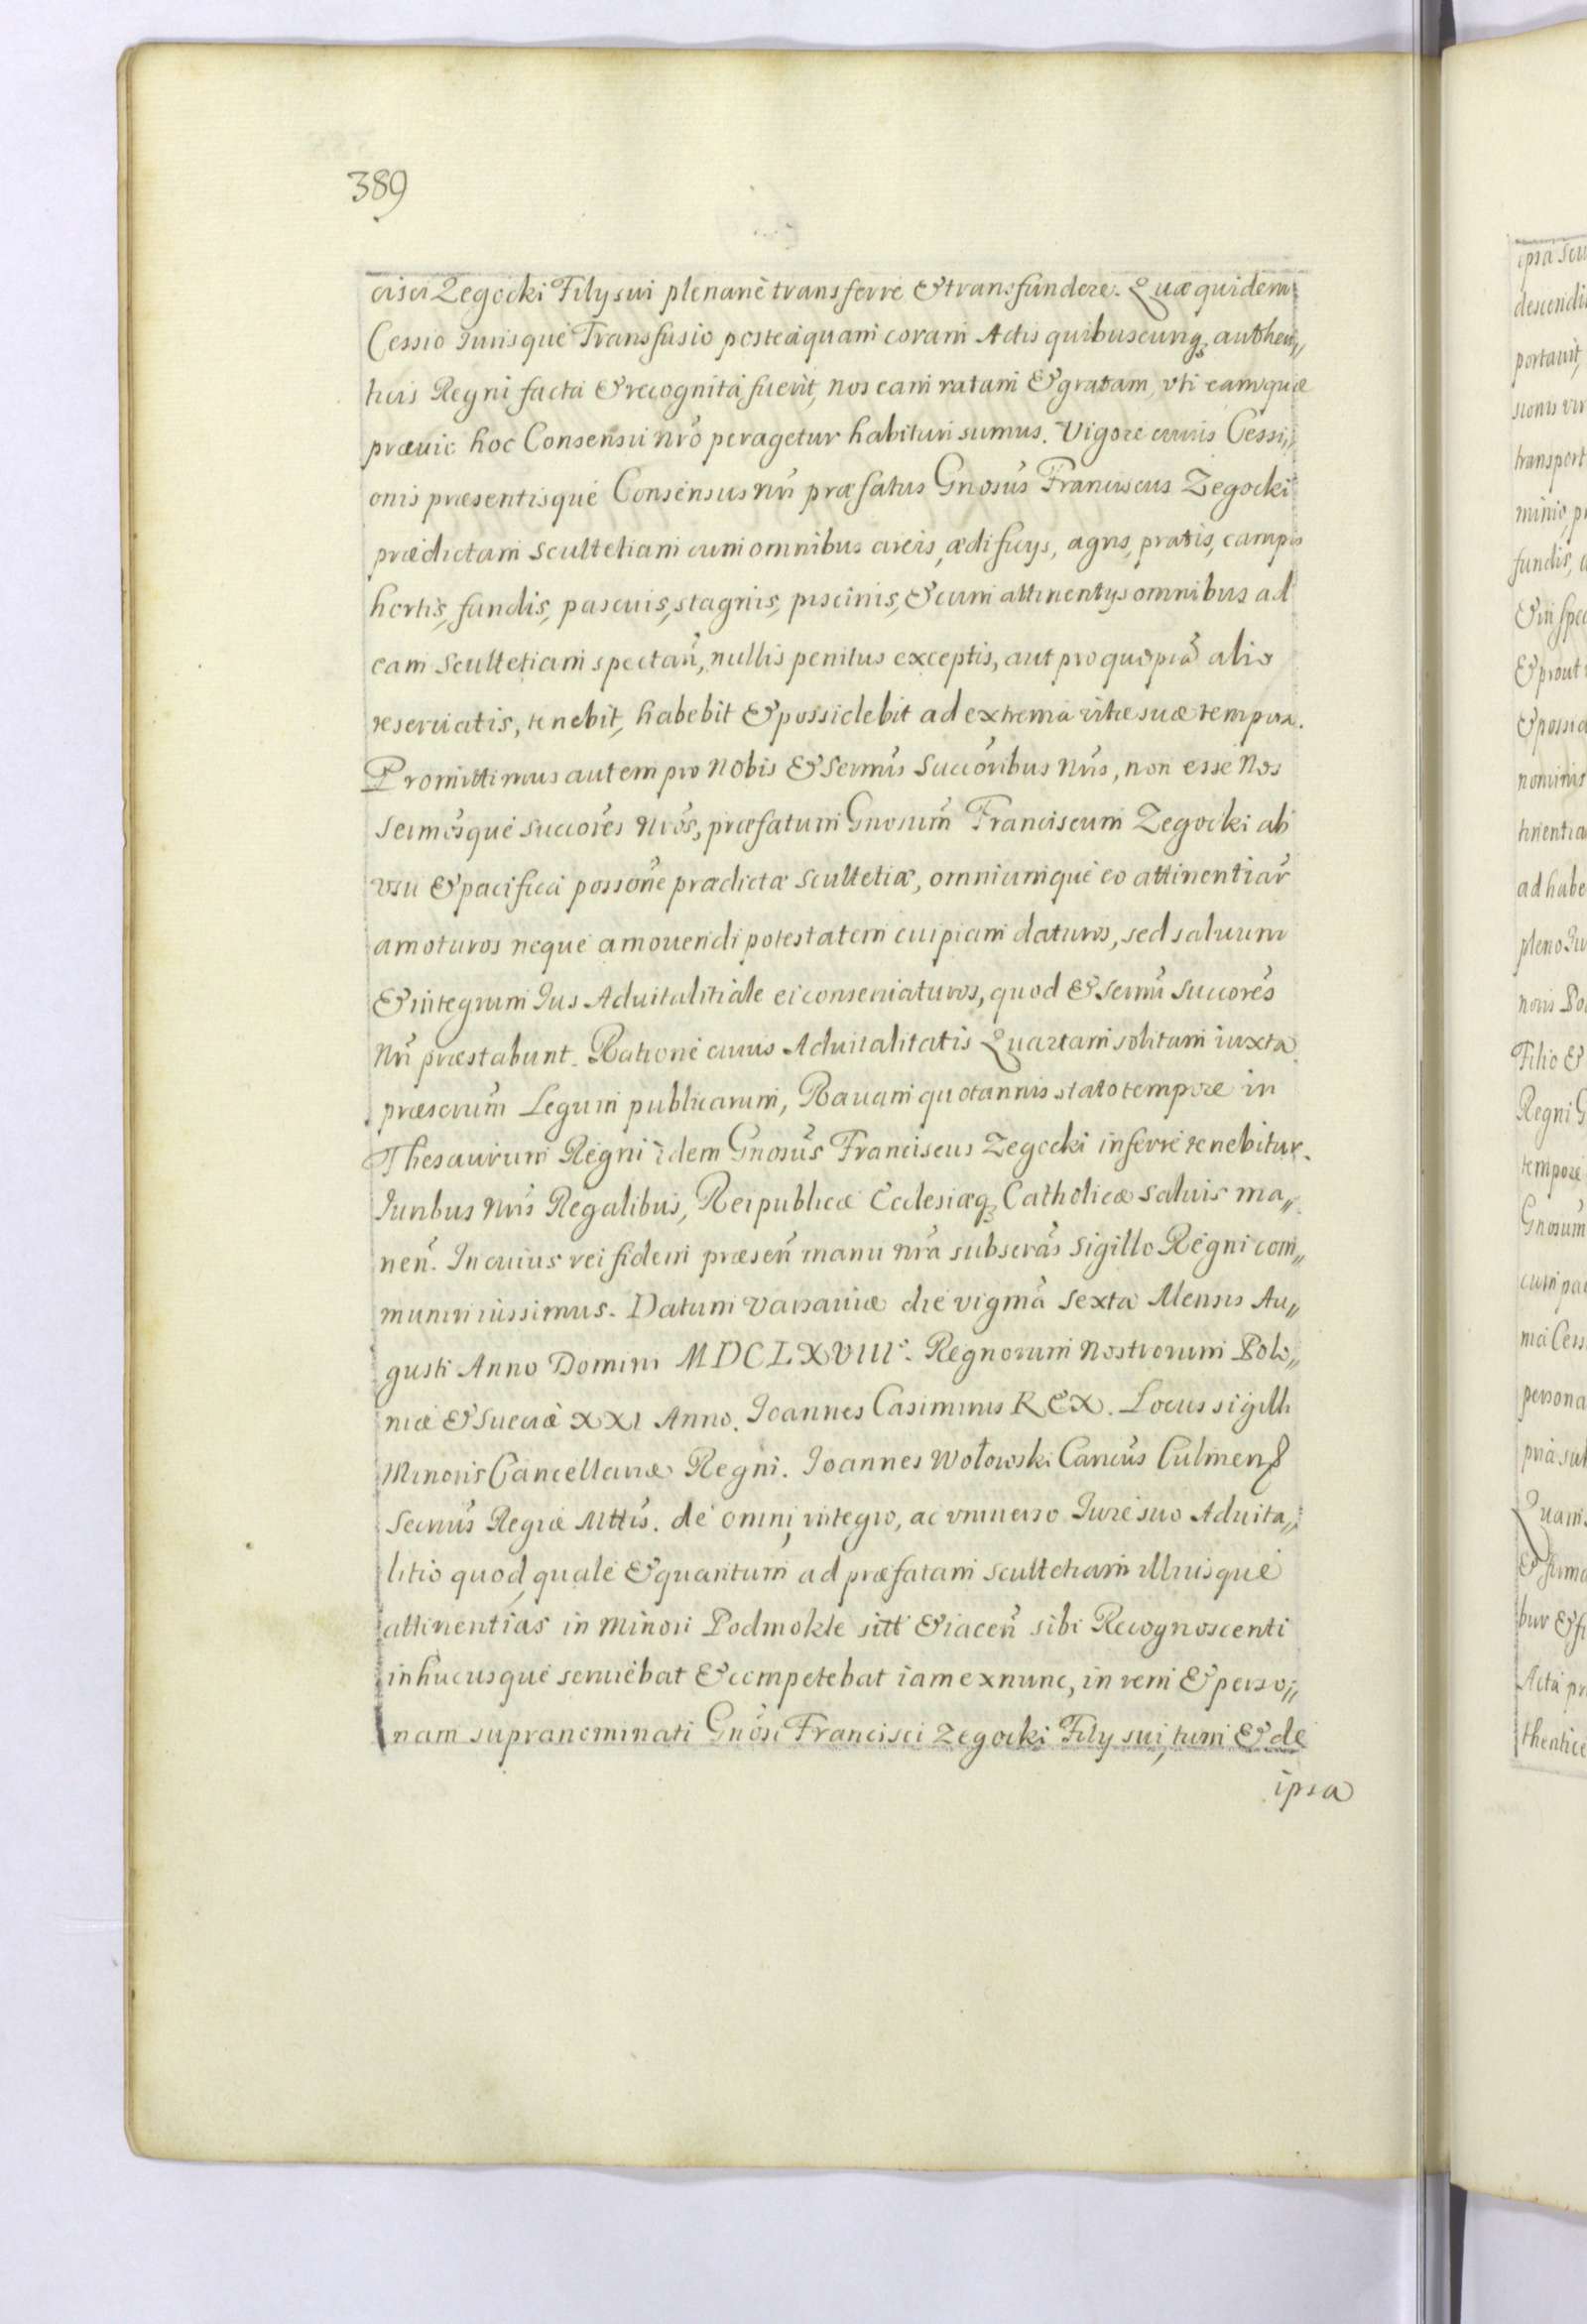 389
cisci Zegocki Filÿ sui plenarie transferre & transfundere. Quæ quidem
Cessio Jurisque Transfusio posteaquam coram Actis quibuscunq₃ authen„
ticis Regni facta & recognita fuerit, nos eam ratam & gratam, vti eamque
præuio hoc Consensu nr̃o peragetur habituri sumus. Vigore cuius Cessi„
onis præsentisque Consensus nr̃i præfatus Gnosus̃ Franciscus Zegocki
prædictam Scultetiam cum omnibus areis, ædificÿs, agris, pratis, campis
hortis, fundis, pascuis, stagnis, piscinis, & cum attinentÿs omnibus ad
eam Scultetiam spectañ, nullis penitus exceptis, aut pro quopiã alio
reseruatis, tenebit, habebit & possidebit ad extrema vitæ suæ tempora.
Promittimus autem pro Nobis & Sermis̃ Succoribus̃ Nris̃, non esse Nos
Sermosquẽ Succores̃ Nros̃, præfatum Gnosum̃ Franciscum Zegocki ab
vsu & pacifica possonẽ prædictæ Scultetiæ, omniumque eo attinentiar̃
amoturos neque amouendi potestatem cuipiam daturos, sed saluum
& integrum Jus Aduitalitiale ei conseruaturos, quod & Sermi̇̃ Succores̃
Nri̇̃ præstabunt. Ratione cuius Aduitalitatis Quartam solitam iuxta
præscrum̃ Legum publicarum, Rauam quotannis stato tempore in
Thesaurum Regni idem Gnosus̃ Franciscus Zegocki inferre tenebitur.
Juribus Nris̃ Regalibus, Reipublicæ Ecclesiæq₃ Catholicæ saluis ma„
neñ. In cuius rei fidem præseñ manu nrã subscras̃ Sigillo Regni com„
muniri iussimus. Datum Varsauiæ die vigmã sexta Mensis Au„
gusti Anno Domini MDCLXVIII°. Regnorum Nostrorum Polo„
niæ & Sueciæ XXI Anno. Joannes Casimirus REX. Locus sigilli
Minoris Cancellariæ Regni. Joannes Wołowski Cancus̃ Culmenß
Secrius̃ Regiæ Mttis̃. de omni, integro, ac vniuerso Jure suo Aduita„
litio quod, quale & quantum ad præfatam Scultetiam illiusque
attinentias in Minori Podmokle sitt̃ & iaceñ sibi Recognoscenti
inhucusque seruiebat & competebat iam ex nunc, in rem & perso„
nam supranominati Gnosi̇̃ Francisci Zegocki Filÿ sui, tum & de
ipsa